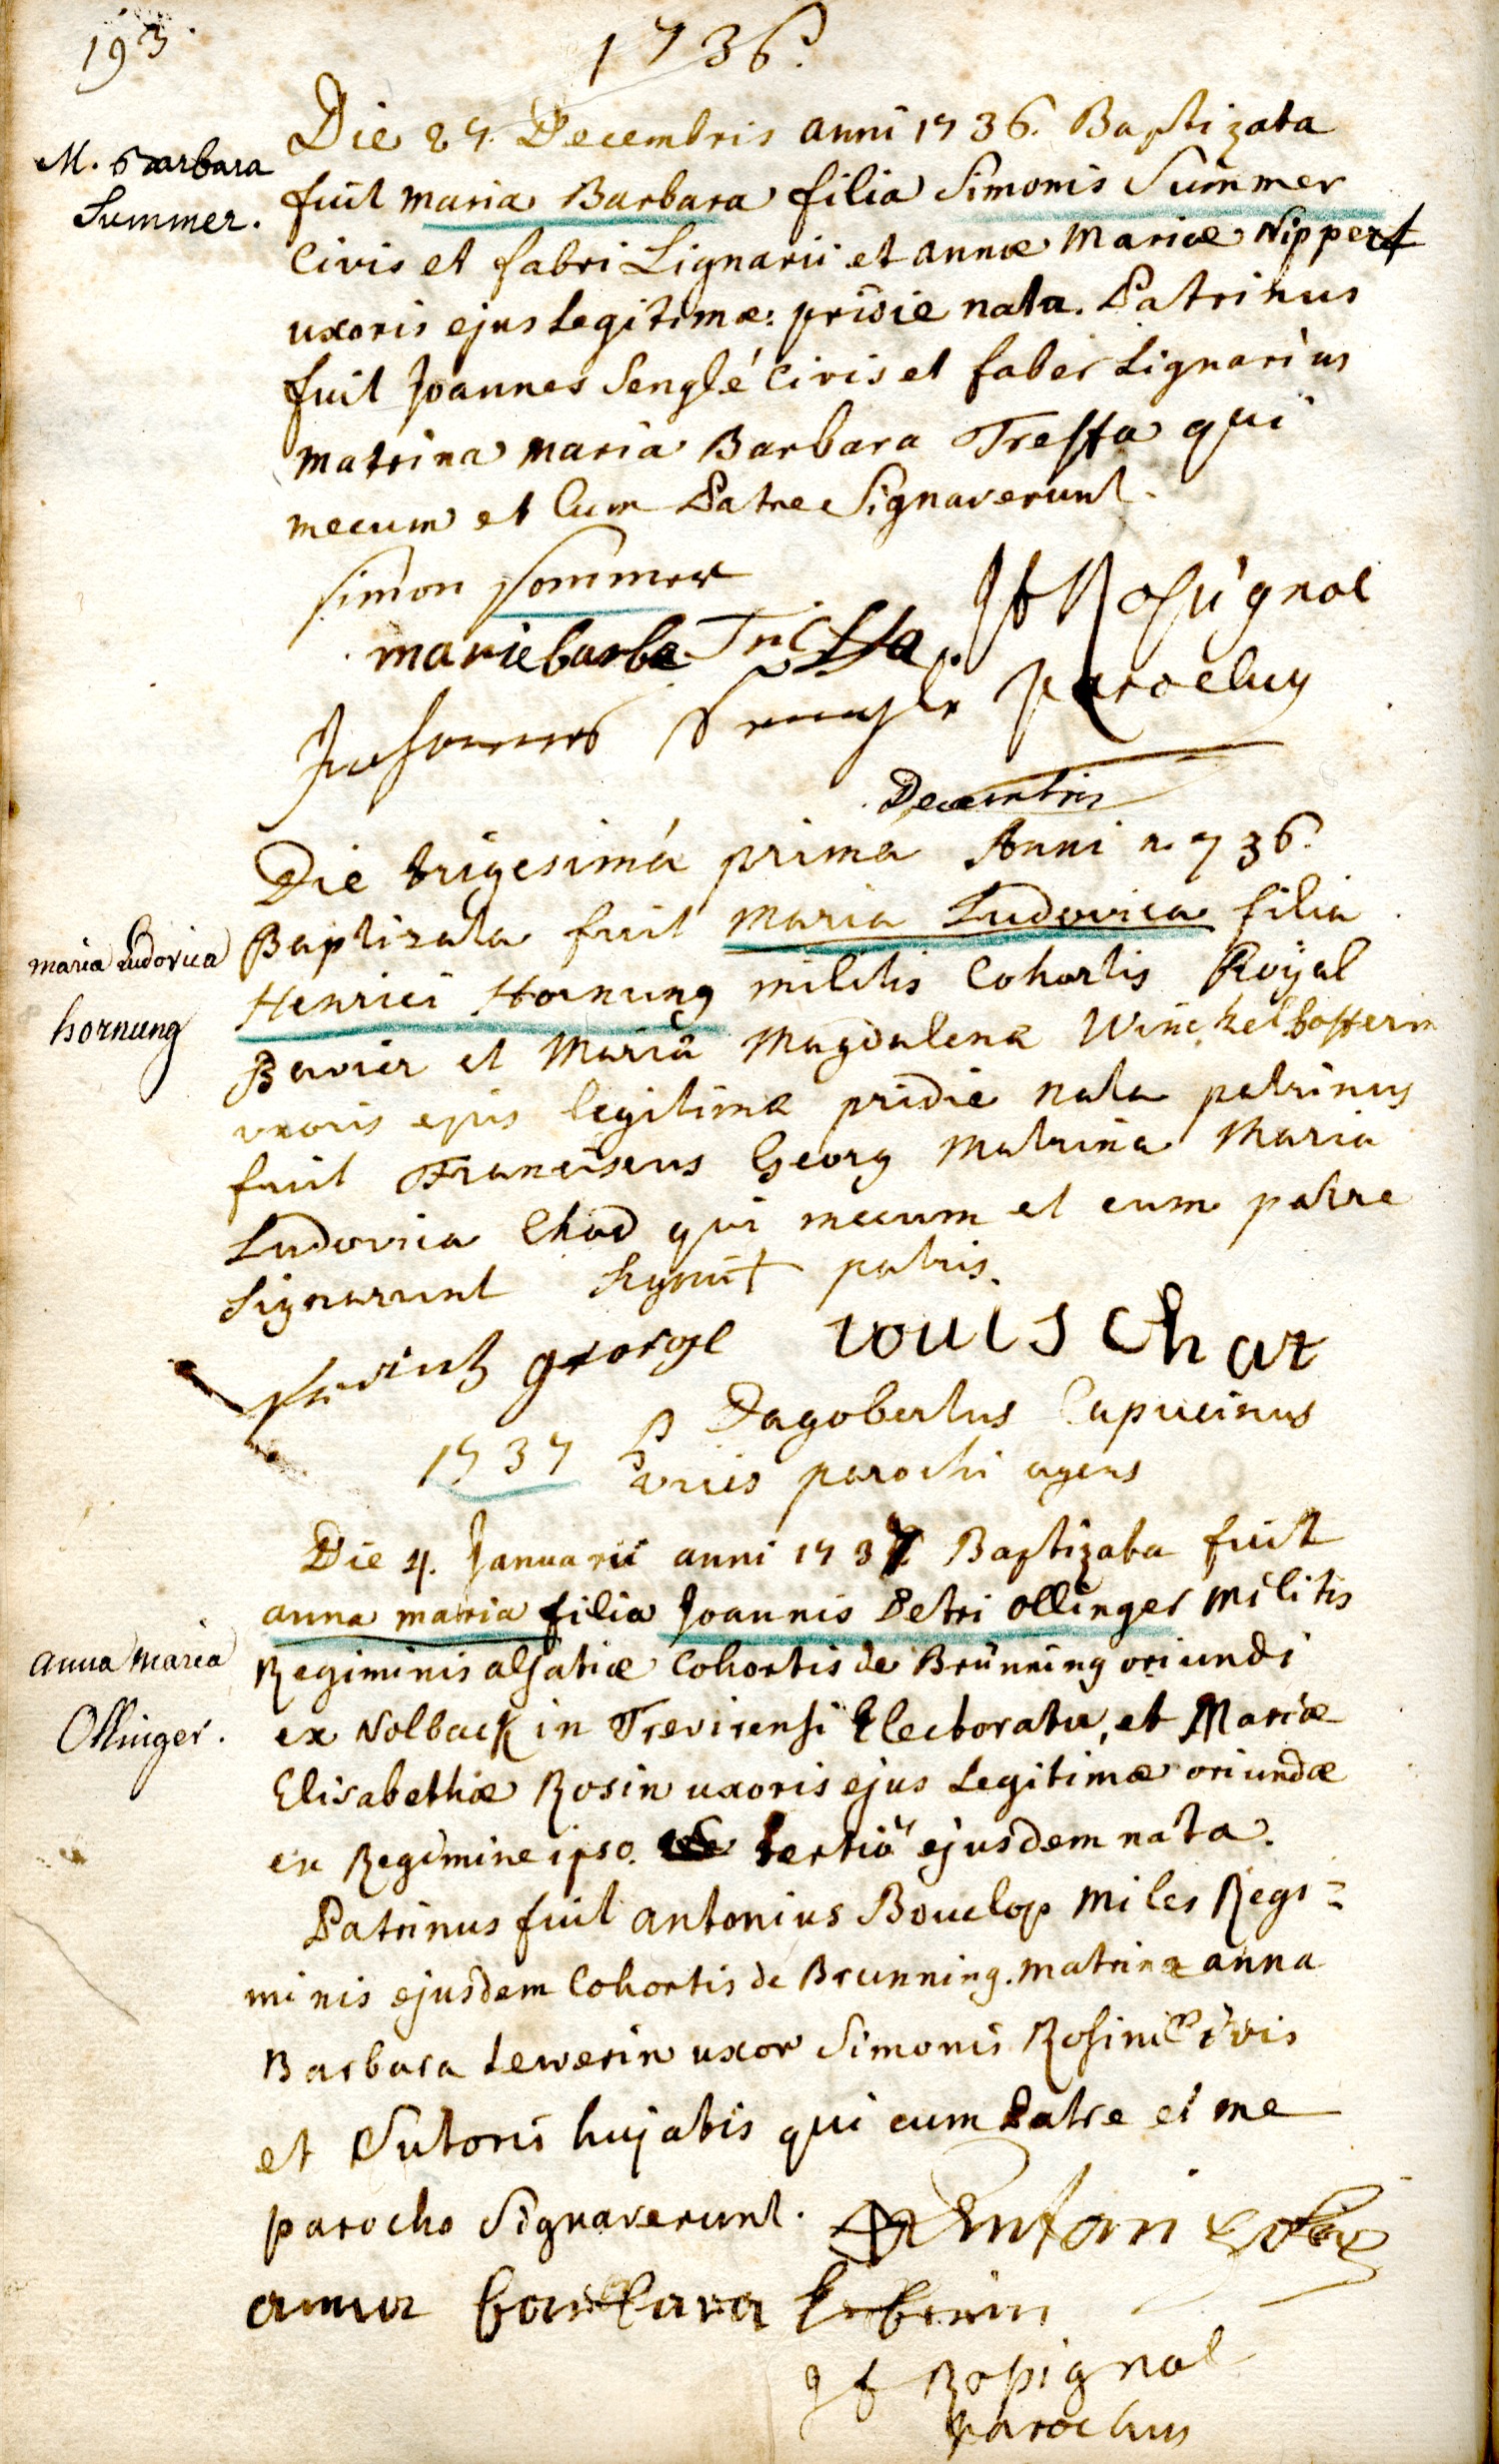 193.
1736.
M. Barbara
Summer.
Die 27. Decembris anni 1736. Baptizata
fuit maria Barbara filia Simonis Summer
Civis et fabri Lignarii et annæ Mariæ Nippert
uxoris ejus Legitimæ: pridie nata. Patrinus
fuit Joannes Senglé Civis et faber Lignarius
matrina maria Barbara Tressa qui
mecum et Cum Patre Signaverunt.
simon sommer
mariebarbe Tressa
Jf Rossignol
Johannes Sengle
parochus
Decembris
Die trigesimá primá Anni 1736.
maria Ludovica
hornung
Baptizata fuit Maria Ludovica filia
Henrici Hornung militis Cohortis Royal
Bavier et Maria Magdalena Winckelhofferin
uxoris ejus legitima pridie nata patrinus
fuit Franciscus Georg Matrina Maria
Ludovica Chad qui mecum et cum patre
signarunt signū + patris.
george
Louis Chat
P Dagobertus Capucinus
vices parochi agens
1737
Die 4. Januarii anni 1737. Baptizata fuit
anna maria filia Joannis Petri Ollinger Militis
anna Maria
Ollinger.
Regiminis alsatiæ Cohortis de Brünning oriundi
ex Nolback in Trevirensi Electoratu, et Mariæ
Elisabethæ Rosin uxoris ejus Legitimæ oriundæ
ex Regimine ipso. tertiâ ejusdem nata.
Patrinus fuit antonius Bouclop Miles Regi=
minis ejusdem Cohortis de Brunning. matrina anna
Barbara Lewerin uxor Simonis Rosin Civis
et Sutoris hujatis qui cum Patre et me
parocho Signaverunt.
Antoni
anna barbara Leberin
Jf Rossignol
parochus